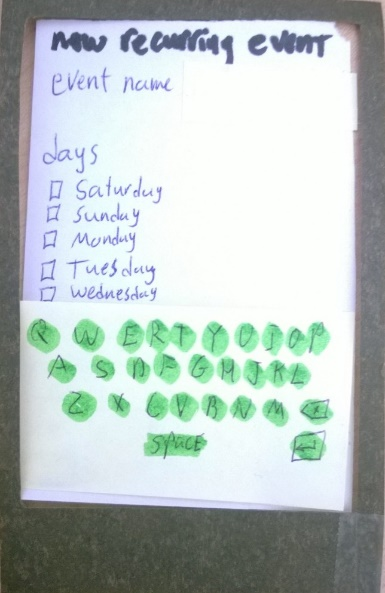 new recurring event
event name
days
Saturday
Sunday
Monday
Tuesday
Wednesday
Q W E R T Y U I O P
A S D F G H J K L
Z X C V B N M
space